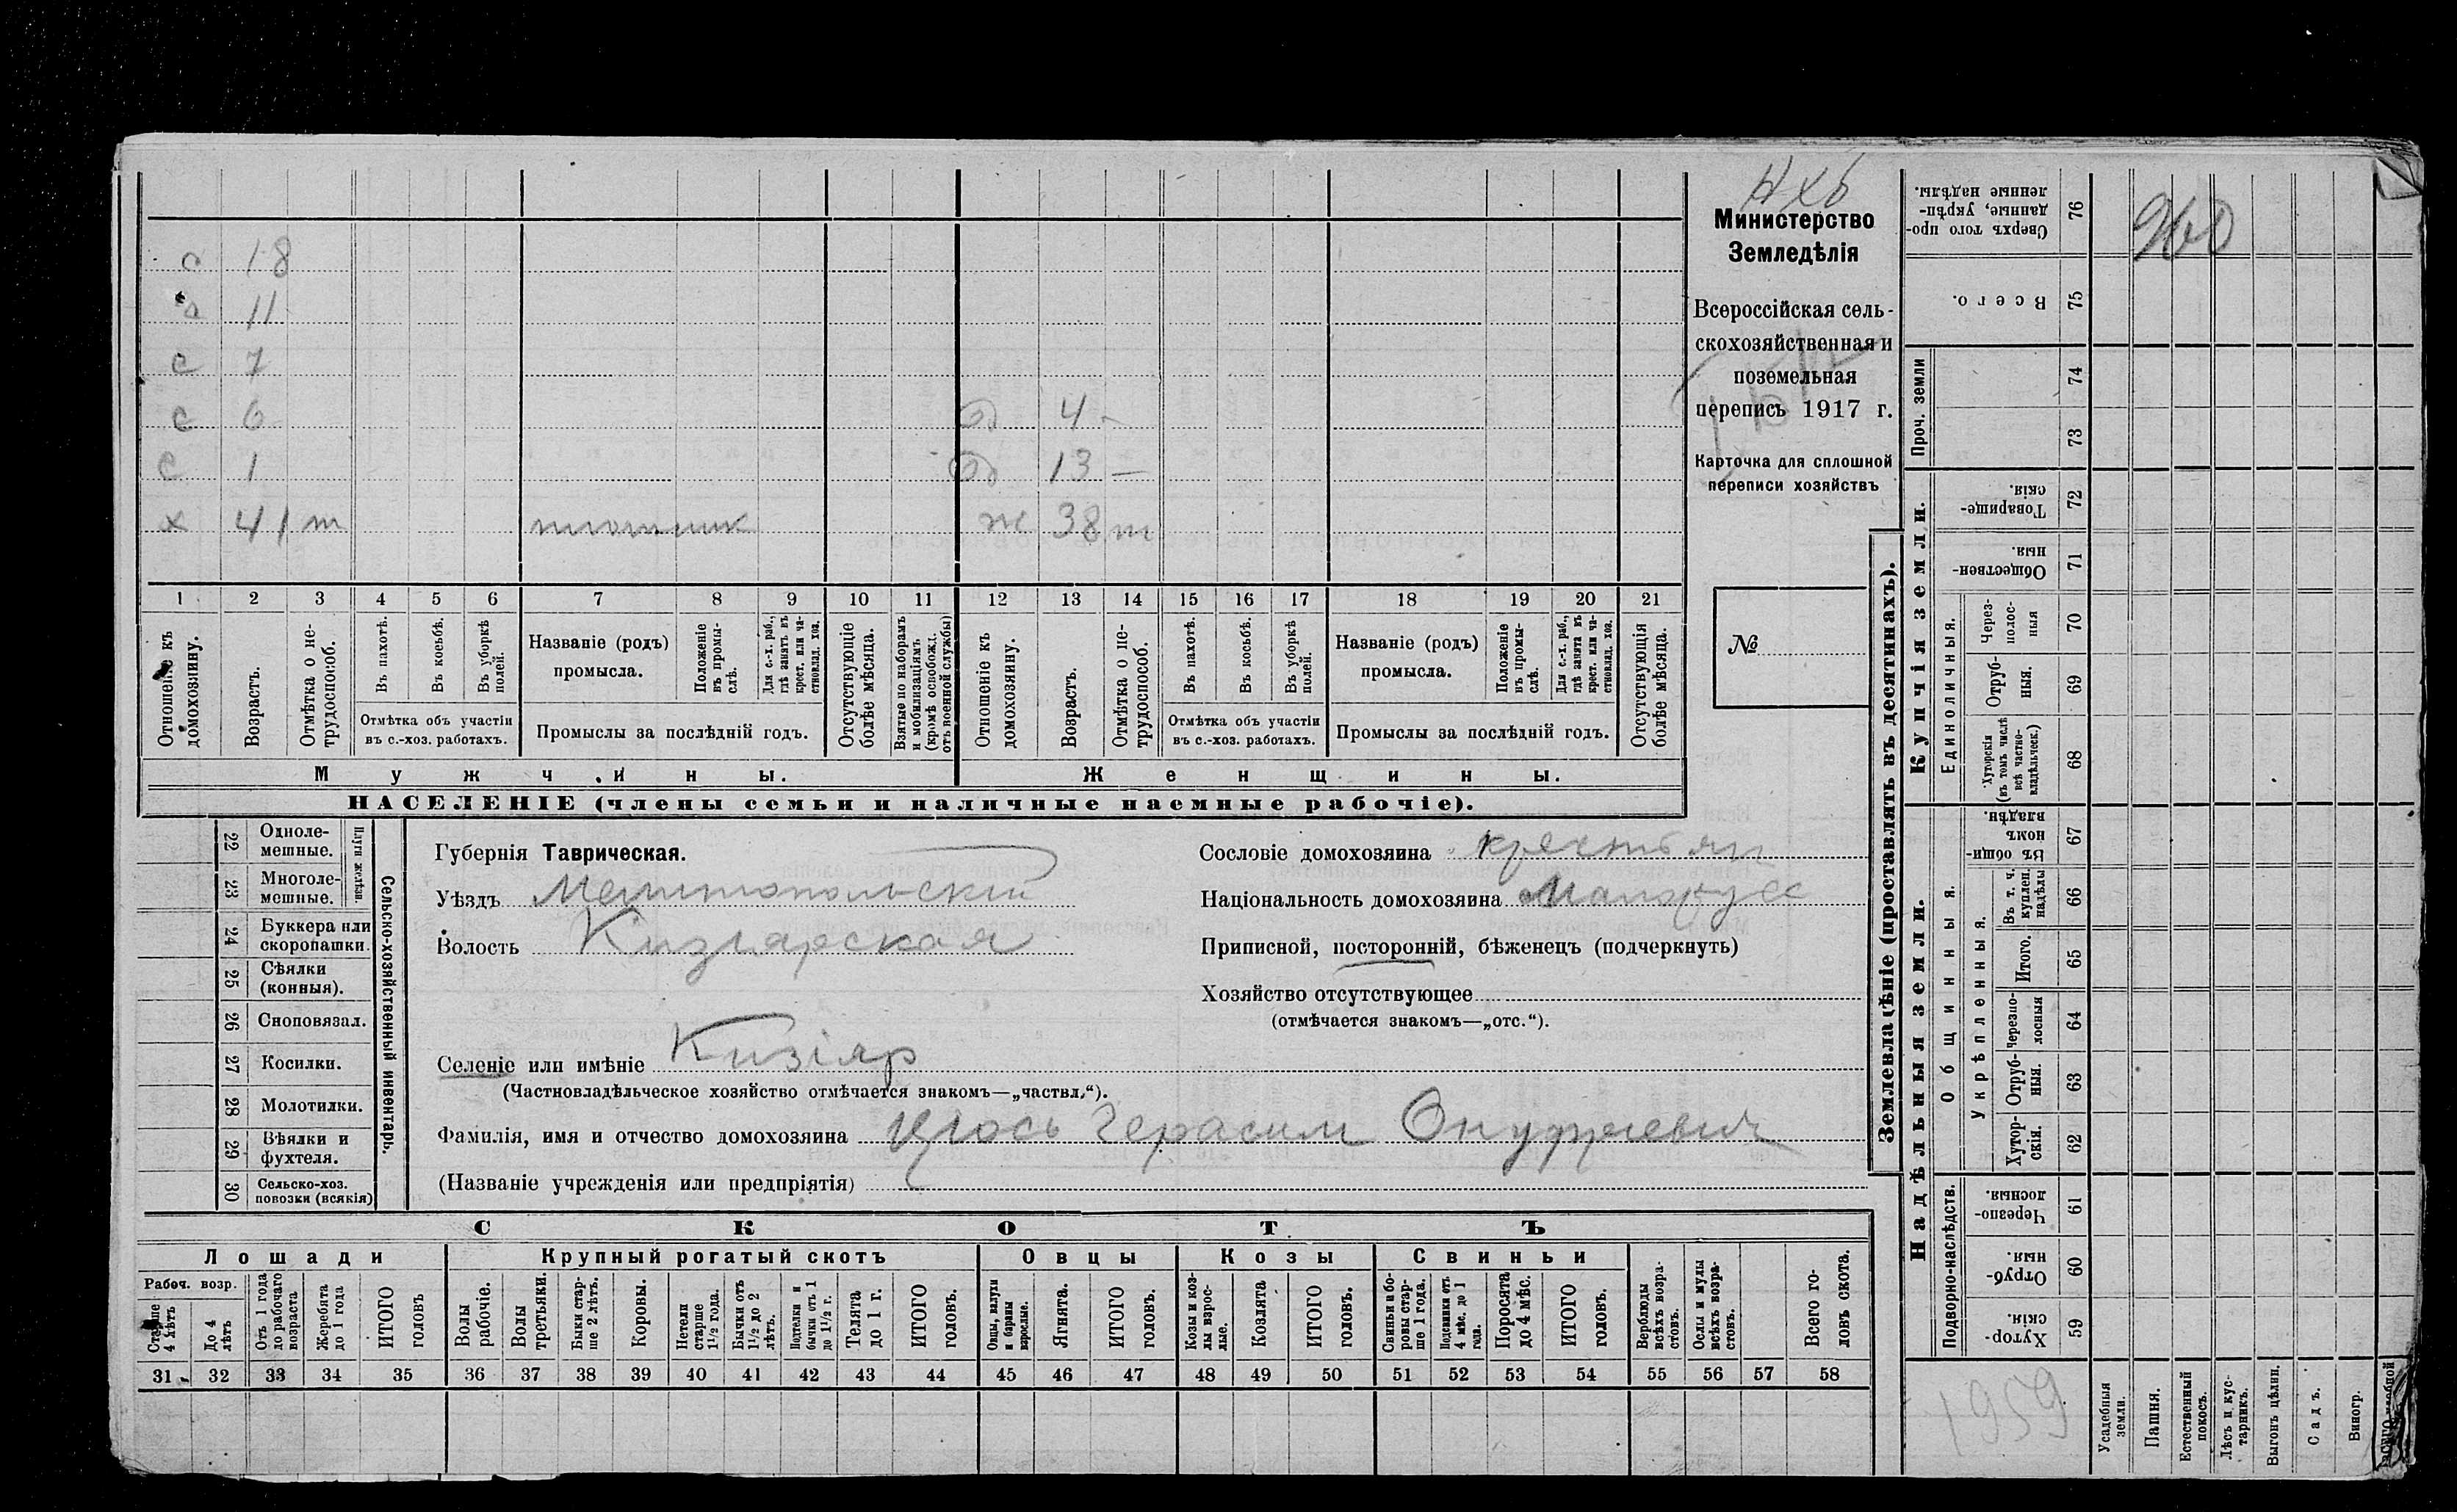 960
Министерство
Земледѣлія
Всероссійская сель-
скохозяйственная и
поземельная
перепись 1917 г.
Карточка для сплошной
переписи хозяйствъ
№
с 18
с 11
с 7
с 6 4 -
с 1 13 —
х 41 т плотник ж 38 т
1 2 3 4 5 6 7 8 9 10 11 12 13 14 15 16 17 18 19 20 21
Отношеніе къ домохозяину.
Возрастъ.
Отмѣтка о не-трудоспособ.
Въ пахотѣ.
Въ косьбѣ.
Въ уборкѣ полей.
Отмѣтка объ участіи
въ с.-хоз. работахъ.
Названіе (родъ)
промысла.
Положеніе въ промы-слѣ.
Для с.-х. раб., гдѣ занятъ въ крест. или ча-стновлад. хоз.
Промыслы за послѣдній годъ.
Отсутствующіе болѣе мѣсяца.
Взятые по наборамъ и мобилизаціямъ (кромѣ освобожд. отъ военной службы)
Отношеніе къ домохозяину.
Возрастъ.
Отмѣтка о не-трудоспособ.
Въ пахотѣ.
Въ косьбѣ.
Въ уборкѣ полей.
Отмѣтка объ участіи
въ с.-хоз. работахъ.
Названіе (родъ)
промысла.
Положеніе въ промы-слѣ.
Для с.-х. раб., гдѣ занята въ крест. или ча-стновлад. хоз.
Промыслы за послѣдній годъ.
Отсутствующія болѣе мѣсяца.
Мужчины.
Женщины.
НАСЕЛЕНІЕ (члены семьи и наличные наемные рабочіе).
Сельско-хозяйственный инвентарь.
Плуги желѣзн.
22 Одноле-
мешные.
23 Многоле-
мешные.
24 Буккера или
скоропашки.
25 Сѣялки
(конныя).
26 Сноповязал.
27 Косилки.
28 Молотилки.
29 Вѣялки и
фухтеля.
30 Сельско-хоз.
повозки (всякія)
Губернія Таврическая.
Уѣздъ Мелитопольскій
Волость Кизіярская
Селеніе или имѣніе Кизіяр
(Частновладѣльческое хозяйство отмѣчается знакомъ—„частвл.“).
Сословіе домохозяина крестьян
Національность домохозяина Малорусс
Приписной, посторонній, бѣженецъ (подчеркнуть)
Хозяйство отсутствующее
(отмѣчается знакомъ—„отс.“).
Фамилія, имя и отчество домохозяина Цюсь Герасим Онуфриевич
(Названіе учрежденія или предпріятія)
СКОТЪ
Лошади
Рабоч. возр.
31 Старше 4 лѣтъ
32 До 4 лѣтъ
33 Отъ 1 года до рабочаго возраста
34 Жеребята до 1 года
35 ИТОГО головъ
Крупный рогатый скотъ
36 Волы рабочіе.
37 Волы третьяки.
38 Быки стар-ше 2 лѣтъ.
39 Коровы.
40 Нетели старше 1½ года.
41 Бычки отъ 1½ до 2 лѣтъ.
42 Подтелки и бычки отъ 1 до 1½ г.
43 Телята до 1 г.
44 ИТОГО головъ.
Овцы
45 Овцы, валухи и бараны взрослые.
46 Ягнята.
47 ИТОГО головъ.
Козы
48 Козы и коз-лы взрос-лые.
49 Козлята
50 ИТОГО головъ.
Свиньи
51 Свиньи и бо-ровы стар-ше 1 года.
52 Подсвинки отъ 4 мѣс. до 1 года.
53 Поросята до 4 мѣс.
54 ИТОГО головъ.
55 Верблюды всѣхъ возра-стовъ.
56 Ослы и мулы всѣхъ возра-стовъ.
57
58 Всего го-ловъ скота.
Землевладѣніе (проставлять въ десятинахъ).
Надѣльныя земли.
Подворно-наслѣдств.
59 Хутор-скія.
60 Отруб-ныя.
61 Черезпо-лосныя.
Общинныя.
Укрѣпленныя.
62 Хутор-скія.
63 Отруб-ныя.
64 Черезпо-лосныя
65 Итого.
66 Въ т. ч. куплен. надѣлы
67 Въ общин-номъ владѣн.
Купчія земли.
Единоличныя.
68 Хуторскія (въ томъ числѣ всѣ частно-владѣльческ.)
69 Отруб-ныя.
70 Через-полос-ныя
71 Обществен-ныя.
72 Товарище-скія.
Проч. земли
73
74
75 Всего.
76 Сверхъ того про-данные, укрѣп-ленные надѣлы.
Усадебныя земли.
Пашня.
Естественный покосъ.
Лѣсъ и кус-тарникъ.
Выгонъ цѣлин.
Садъ.
Виногр.
1959